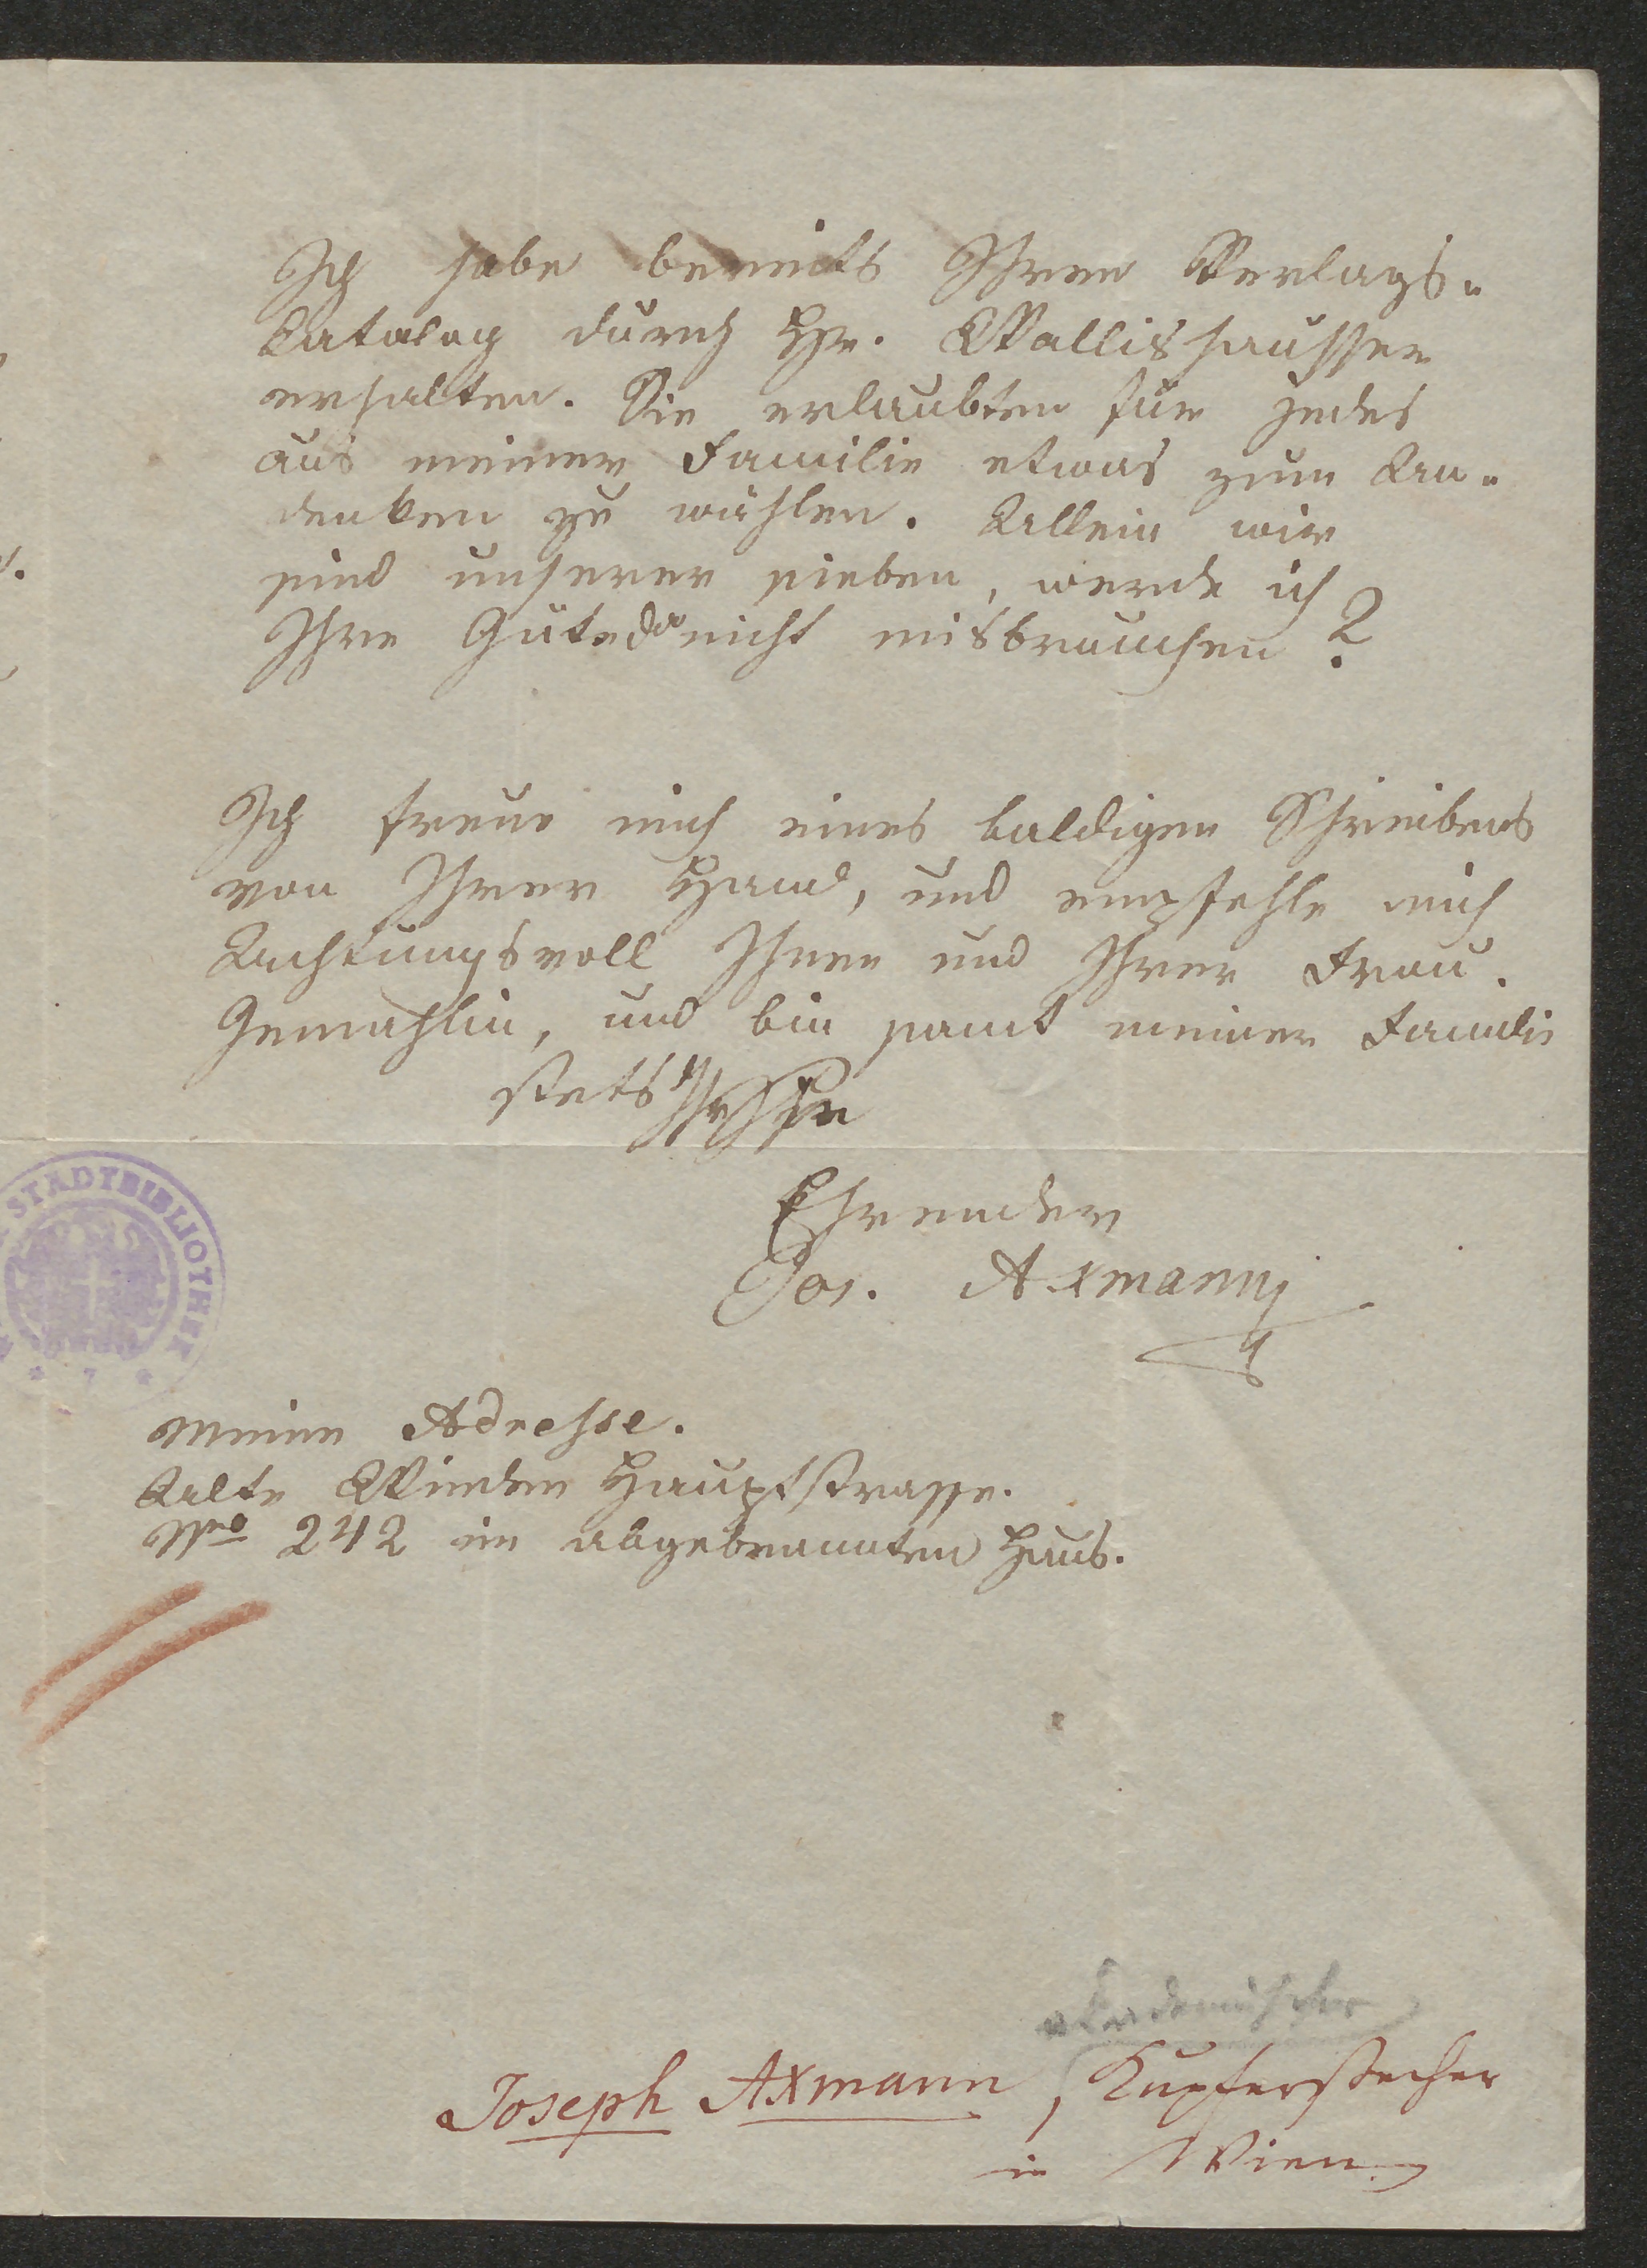 Ich habe bereits Ihren Verlags-
Catalog durch Hr. Wallishausser
erhalten. Sie erlaubten für jedes
aus meiner Familie etwas zum An-
denken zu wählen. Allein wir
sind unserer sieben, werde ich
Ihre Güte da nicht misbrauchen?
Ich freue mich eines baldigen Schreibens
von Ihrer Hand, und empfehle mich
Achtungsvoll Ihnen und Ihrer Frau
Gemahlin, und bin samt meiner Familie
stets Sie
Ehrender
Jos. Axmann
STADTBIBLIOTHEK
* 7 *
Meine Adresse.
Alte Wieden Hauptstrasse.
Nro 242 im abgebrannten Haus.
Akademischer
Joseph Axmann, Kupferstecher
in Wien